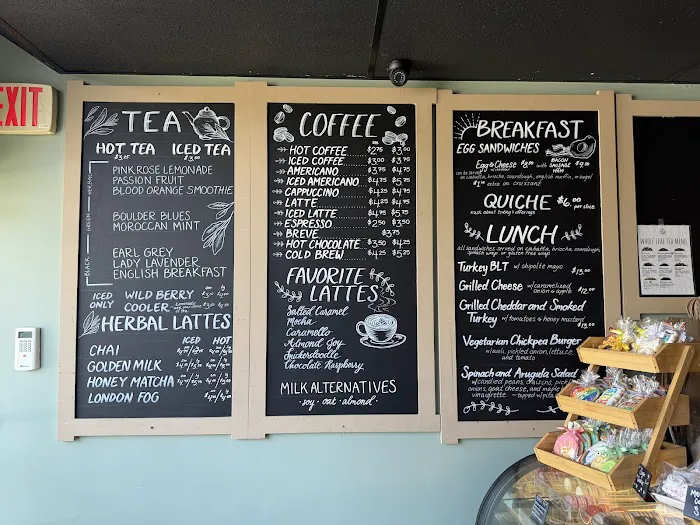 EXIT
TEA
HOT TEA ICED TEA
HERBAL
PINK ROSE LEMONADE
PASSION FRUIT
BLOOD ORANGE SMOOTHIE
GREEN
BOULDER BLUES
MOROCCAN MINT
BLACK
EARL GREY
LADY LAVENDER
ENGLISH BREAKFAST
ICED ONLY WILD BERRY
COOLER
HERBAL LATTES
ICED HOT
CHAI
GOLDEN MILK
HONEY MATCHA
LONDON FOG
COFFEE
HOT COFFEE $2.75 $3.00
ICED COFFEE $3.00 $3.75
AMERICANO $3.75 $4.75
ICED AMERICANO $4.75 $5.75
CAPPUCCINO $4.25 $4.75
LATTE $4.25 $4.75
ICED LATTE $4.75 $5.75
ESPRESSO $2.50 $3.50
BREVE $3.75
HOT CHOCOLATE $3.50 $4.25
COLD BREW $4.25 $5.25
FAVORITE
LATTES
Salted Caramel
Mocha
Caramello
Almond Joy
Snickerdoodle
Chocolate Raspberry
MILK ALTERNATIVES
· soy · oat · almond ·
BREAKFAST
EGG SANDWICHES
Egg & Cheese with BACON
SAUSAGE
HAM
$1.00 extra on croissant
QUICHE $6.00
per slice
*ask about today's offerings
LUNCH
all sandwiches served on ciabatta, brioche, sourdough,
spinach wrap or gluten free wrap
Turkey BLT w/ chipotle mayo
$13.00
Grilled Cheese w/caramelized
onion & apple $12.00
Grilled Cheddar and Smoked
Turkey w/tomatoes & honey mustard
$13.00
Vegetarian Chickpea Burger
w/avo, pickled onion, lettuce,
and tomato
Spinach and Arugula Salad
w/candied pecans, craisins, pickled
onions, goat cheese, and maple
vinaigrette
WHOLE LEAF TEA MENU